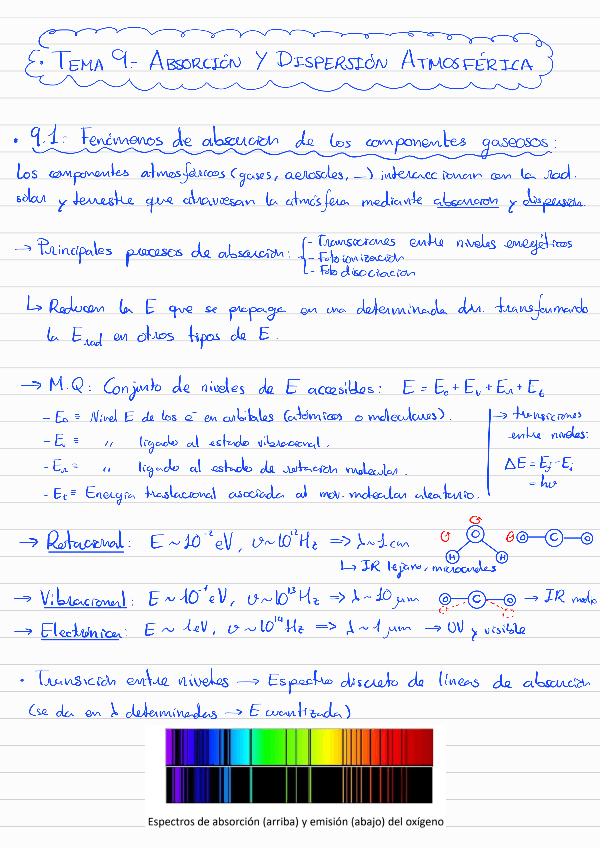 TEMA 9.- ABSORCIÓN Y DISPERSIÓN ATMOSFÉRICA
• 9.1: Fenómenos de absorción de los componentes gaseosos:
Los componentes atmosféricos (gases, aerosoles, ...) interaccionan con la rad.
solar y terrestre que atraviesan la atmósfera mediante absorción y dispersión.
→ Principales procesos de absorción: - Transiciones entre niveles energéticos
- Fotoionización
- Fotodisociación
↳ Reducen la E que se propaga en una determinada dir. transformando
la E_rad en otros tipos de E.
→ M.Q: Conjunto de niveles de E accesibles: E = E_e + E_v + E_r + E_t
- E_e ≡ Nivel E de los e⁻ en orbitales (atómicos o moleculares).
- E_v ≡ " ligado al estado vibracional.
- E_r ≡ " ligado al estado de rotación molecular.
- E_t ≡ Energía traslacional asociada al mov. molecular aleatorio.
→ transiciones
entre niveles:
ΔE = E_j - E_i
= hν
→ Rotacional: E ~ 10⁻² eV, ν ~ 10¹² Hz ⇒ λ ~ 1 cm
O H H O C O
↳ IR lejano, microondas
→ Vibracional: E ~ 10⁻¹ eV, ν ~ 10¹³ Hz ⇒ λ ~ 10 μm O C O → IR medio
→ Electrónica: E ~ 1 eV, ν ~ 10¹⁴ Hz ⇒ λ ~ 1 μm → UV y visible
• Transición entre niveles → Espectro discreto de líneas de absorción
(se da en λ determinadas → E cuantizada)
Espectros de absorción (arriba) y emisión (abajo) del oxígeno